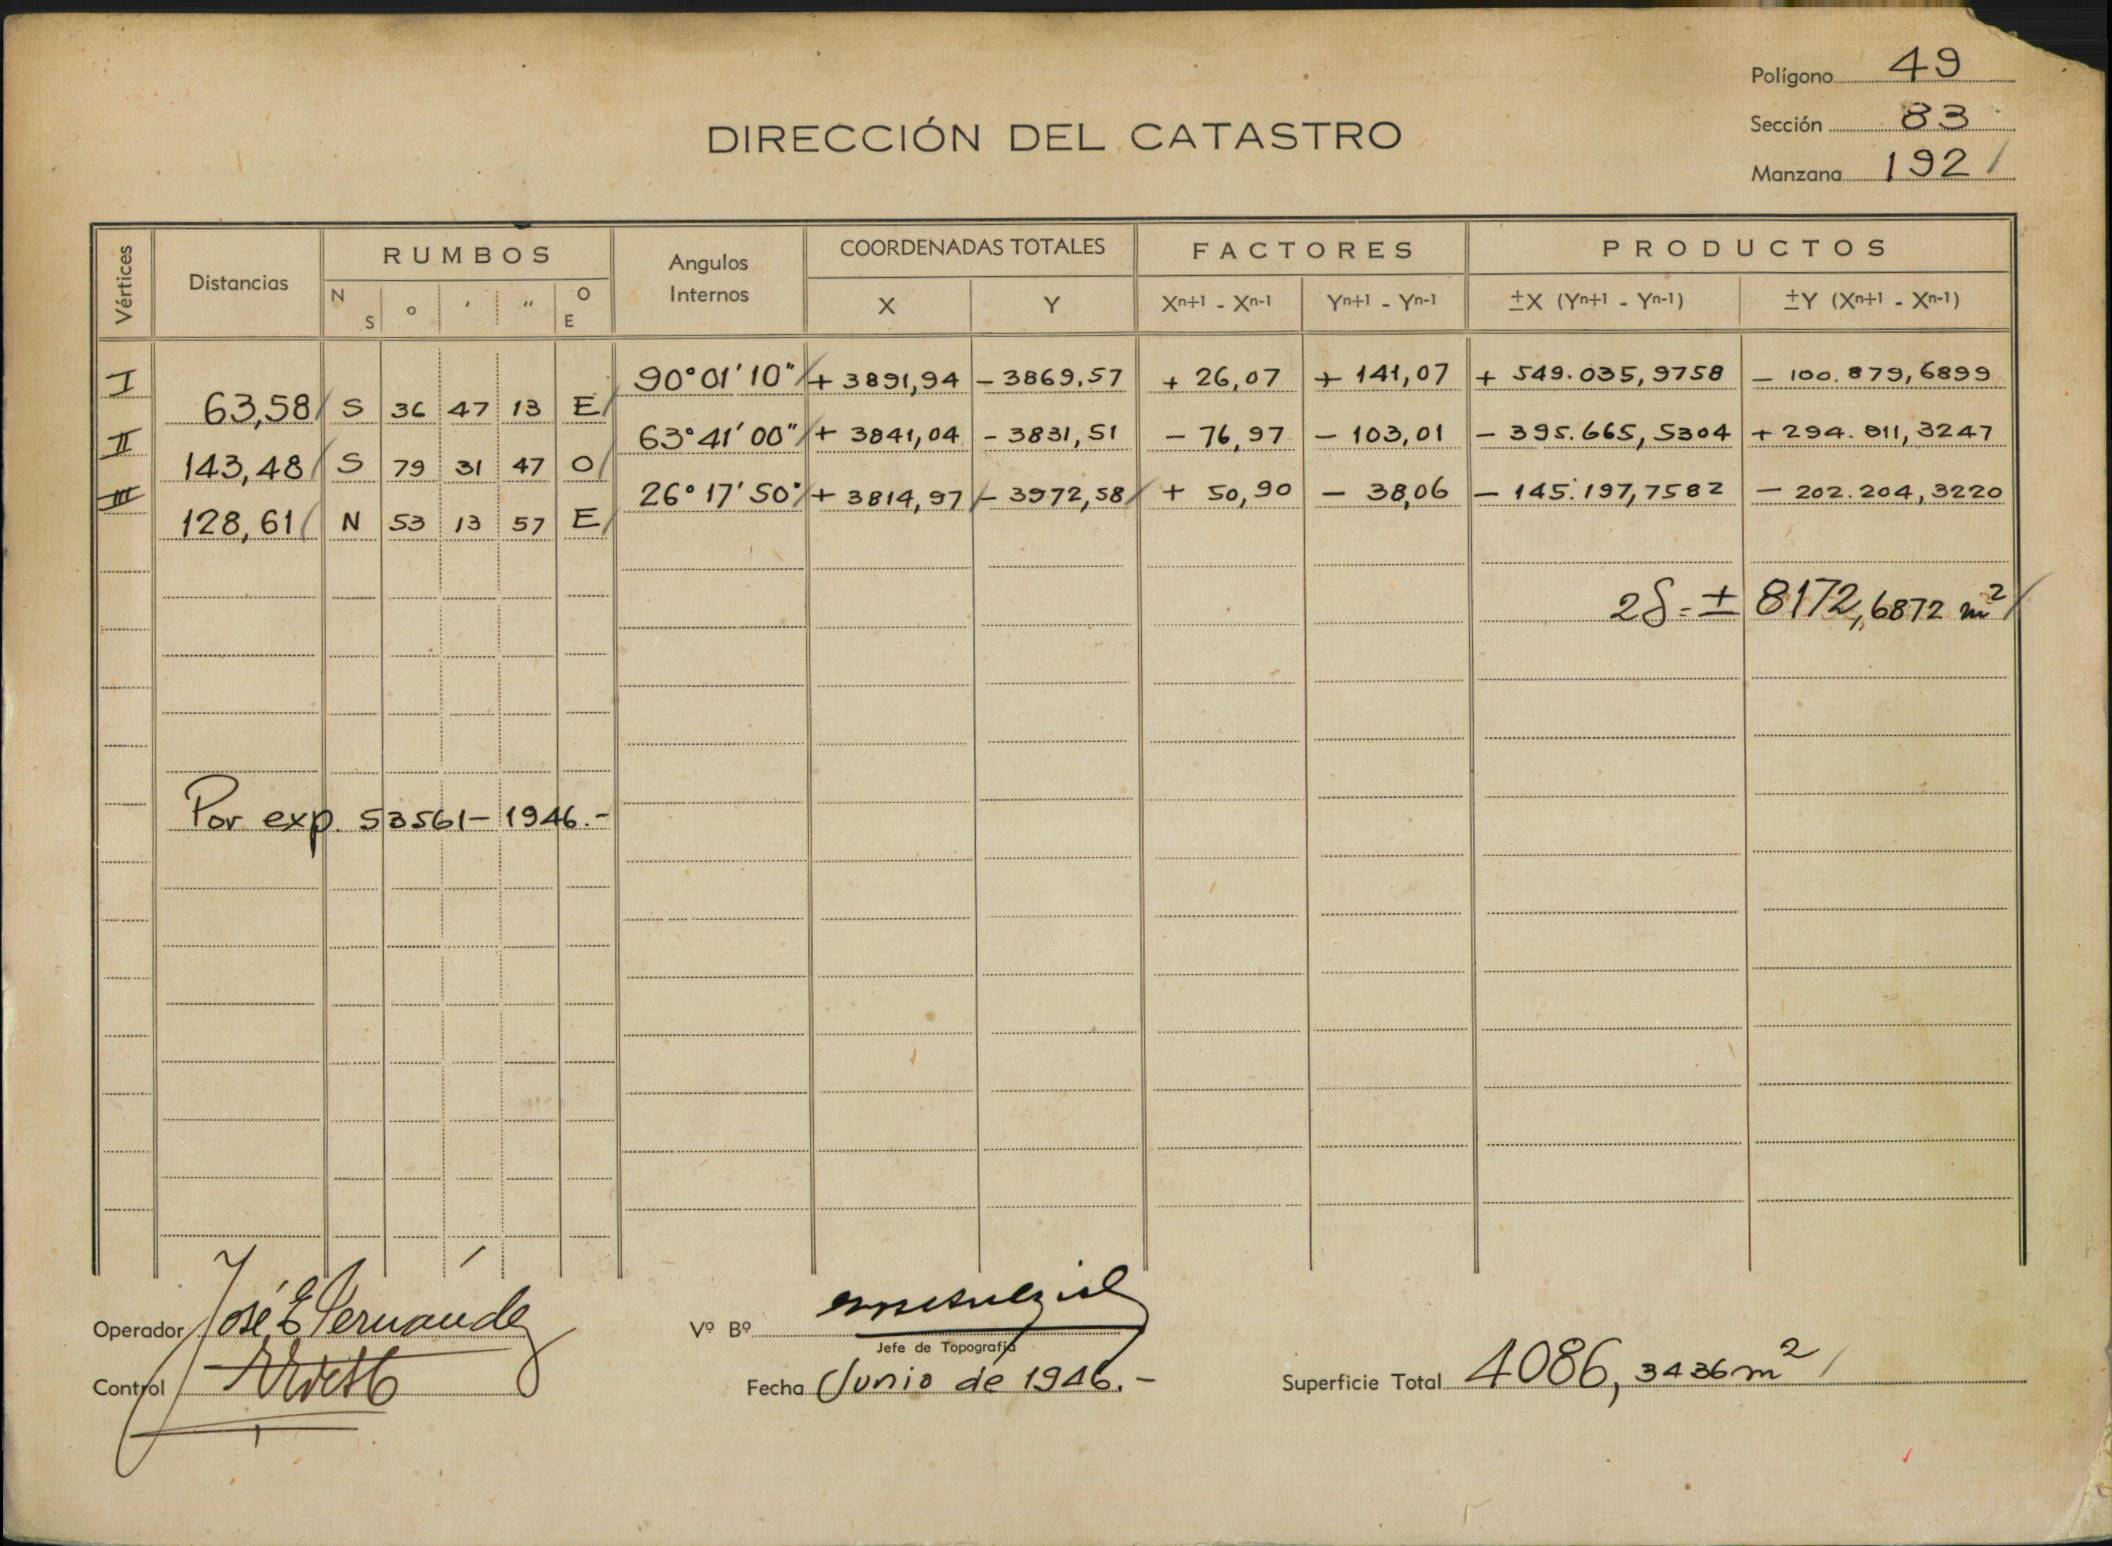 Polígono 49
Sección 83
Manzana 192
DIRECCIÓN DEL CATASTRO
Vértices Distancias RUMBOS Angulos Internos COORDENADAS TOTALES FACTORES PRODUCTOS
N S ° ' " O E X Y Xn+1 - Xn-1 Yn+1 - Yn-1 ±X (Yn+1 - Yn-1) ±Y (Xn+1 - Xn-1)
I 90°01'10" + 3891,94 - 3869,57 + 26,07 + 141,07 + 549.035,9758 - 100.879,6899
63,58 S 36 47 13 E
II 63°41'00" + 3841,04 - 3831,51 - 76,97 - 103,01 - 395.665,5304 + 294.911,3247
143,48 S 79 31 47 O
III 26°17'50" + 3814,97 - 3972,58 + 50,90 - 38,06 - 145.197,7582 - 202.204,3220
128,61 N 53 13 57 E
2S = ± 8172,6872 m²
Por exp. 53561- 1946.-
Operador José E Fernández
Vº Bº
Jefe de Topografía
Control
Fecha Junio de 1946.-
Superficie Total 4086,3436 m²